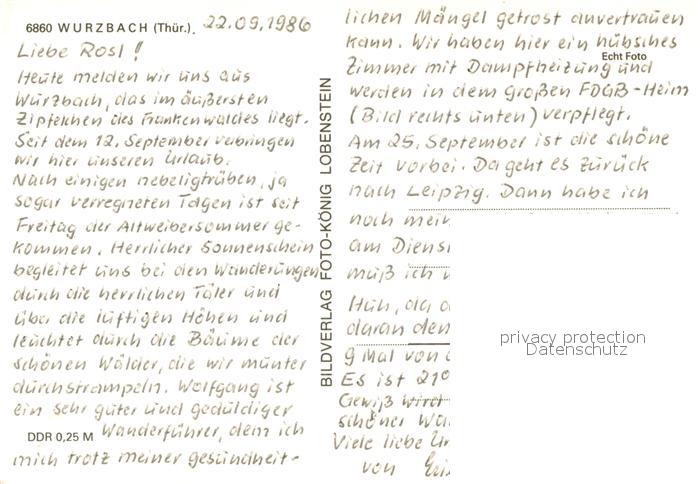 6860 WURZBACH (Thür.). 22.09.1986
Liebe Rosl!
Heute melden wir uns aus
Wurzbach, das im äußersten
Zipfelchen des Frankenwaldes liegt.
Seit dem 12. September verbringen
wir hier unseren Urlaub.
Nach einigen nebeligtrüben, ja
sogar verregneten Tagen ist seit
Freitag der Altweibersommer ge-
kommen. Herrlicher Sonnenschein
begleitet uns bei den Wanderungen
durch die herrlichen Täler und
über die luftigen Höhen und
leuchtet durch die Bäume der
schönen Wälder, die wir munter
durchstrampeln. Wolfgang ist
ein sehr guter und geduldiger
DDR 0,25 M Wanderführer, dem ich
mich trotz meiner gesundheit-
BILDVERLAG FOTO-KÖNIG LOBENSTEIN
lichen Mängel getrost anvertrauen
kann. Wir haben hier ein hübsches
Echt Foto
Zimmer mit Dampfheizung und
werden in dem großen FDGB-Heim
(Bild rechts unten) verpflegt.
Am 25. September ist die schöne
Zeit vorbei. Da geht es zurück
nach Leipzig. Dann habe ich
noch mein
am Diens
muß ich
Huh, da
daran den
9 Mal von
Es ist 21
Gewiß wird
schöner
Viele liebe
von
privacy protection
Datenschutz